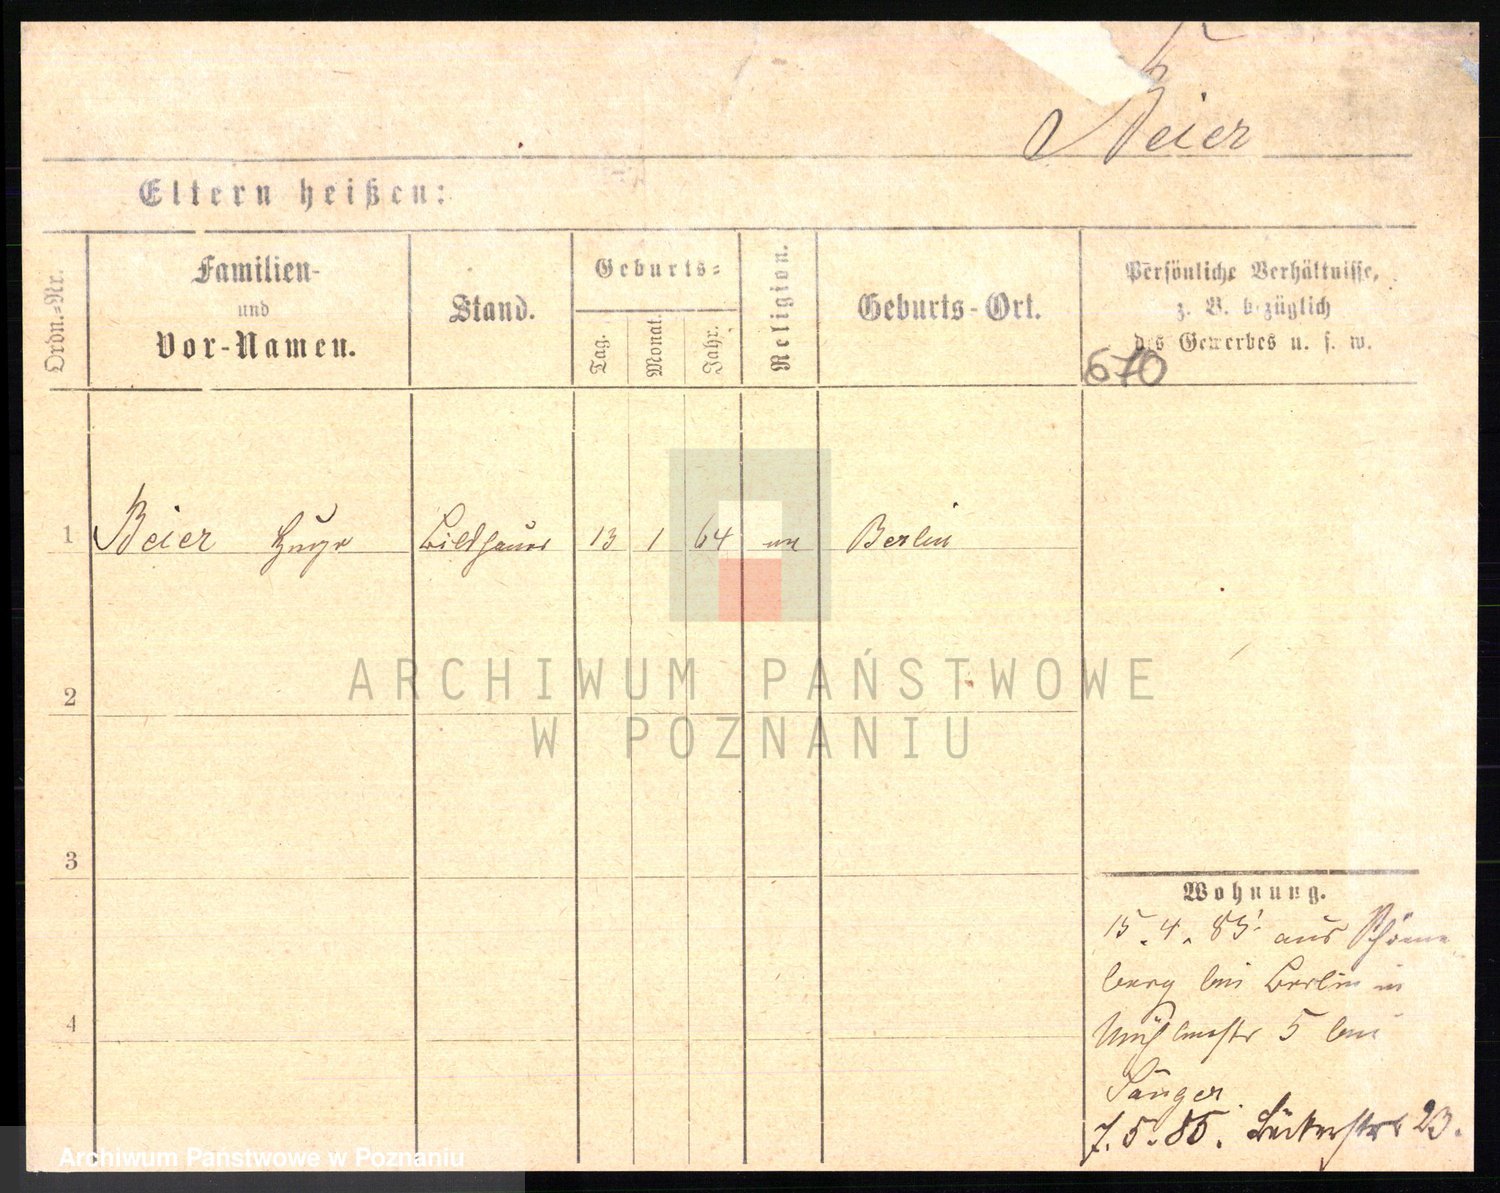 Beier
Eltern heißen:
Ordn.=Nr.
Familien-
und
Vor-Namen.
Stand.
Geburts=
Tag.
Monat.
Jahr.
Religion.
Geburts-Ort.
Persönliche Verhältnisse,
z. B. bezüglich
des Gewerbes u. s. w.
670
1 Beier Hugo Bildhauer 13 1 64 Berlin
ARCHIWUM PAŃSTWOWE
W POZNANIU
2
3
4
Wohnung.
15.4.85 aus Schöne
berg bei Berlin in
Mühlenstr 5 bei
Sänger
7.5.85. Bäckerstr 23.
Archiwum Panstwowe w Poznaniu